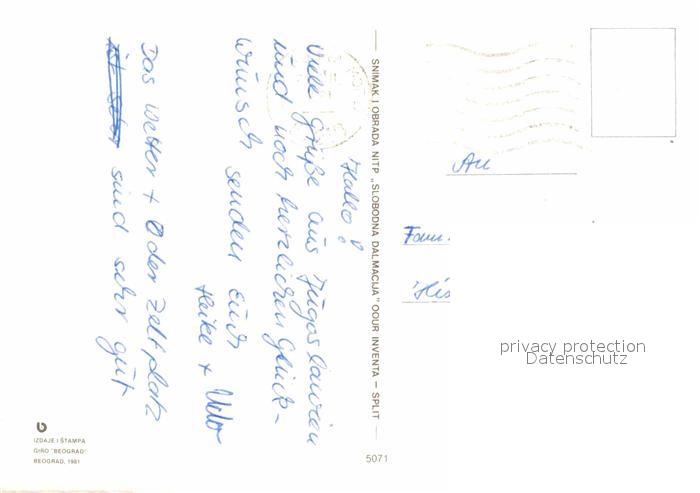 Hallo!
Viele Grüße aus Jugoslawien
und noch herzlichen Glück-
wunsch senden Euch
Heike + Udo
Das Wetter + der Zeltplatz
sind sehr gut
SNIMAK I OBRADA NITP „SLOBODNA DALMACIJA" OOUR INVENTA – SPLIT
An
Fam.
His
privacy protection
Datenschutz
IZDAJE I ŠTAMPA
GIRO "BEOGRAD"
BEOGRAD, 1981
5071